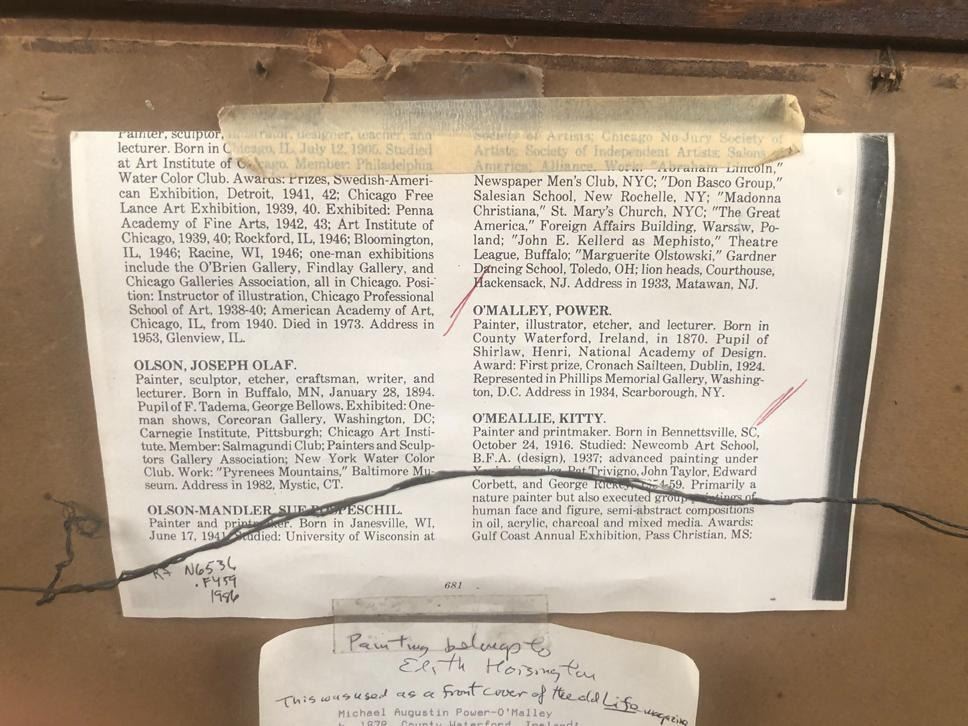 Painter, sculptor, illustrator, designer, teacher, and
lecturer. Born in Chicago, IL, July 12, 1905. Studied
at Art Institute of Chicago. Member: Philadelphia
Water Color Club. Awards: Prizes, Swedish-Ameri-
can Exhibition, Detroit, 1941, 42; Chicago Free
Lance Art Exhibition, 1939, 40. Exhibited: Penna
Academy of Fine Arts, 1942, 43; Art Institute of
Chicago, 1939, 40; Rockford, IL, 1946; Bloomington,
IL, 1946; Racine, WI, 1946; one-man exhibitions
include the O'Brien Gallery, Findlay Gallery, and
Chicago Galleries Association, all in Chicago. Posi-
tion: Instructor of illustration, Chicago Professional
School of Art, 1938-40; American Academy of Art,
Chicago, IL, from 1940. Died in 1973. Address in
1953, Glenview, IL.
OLSON, JOSEPH OLAF.
Painter, sculptor, etcher, craftsman, writer, and
lecturer. Born in Buffalo, MN, January 28, 1894.
Pupil of F. Tadema, George Bellows. Exhibited: One-
man shows, Corcoran Gallery, Washington, DC;
Carnegie Institute, Pittsburgh; Chicago Art Insti-
tute. Member: Salmagundi Club; Painters and Sculp-
tors Gallery Association; New York Water Color
Club. Work: "Pyrenees Mountains," Baltimore Mu-
seum. Address in 1982, Mystic, CT.
OLSON-MANDLER, SUE
Painter and printmaker. Born in Janesville, WI,
June 17, 1941. Studied: University of Wisconsin at
N6536
.F459
1986
Society of Artists; Chicago No-Jury Society of
Artists; Society of Independent Artists; Salons of
America; Alliance. Work: "Abraham Lincoln,"
Newspaper Men's Club, NYC; "Don Basco Group,"
Salesian School, New Rochelle, NY; "Madonna
Christiana," St. Mary's Church, NYC; "The Great
America," Foreign Affairs Building, Warsaw, Po-
land; "John E. Kellerd as Mephisto," Theatre
League, Buffalo; "Marguerite Olstowski," Gardner
Dancing School, Toledo, OH; lion heads, Courthouse,
Hackensack, NJ. Address in 1933, Matawan, NJ.
O'MALLEY, POWER.
Painter, illustrator, etcher, and lecturer. Born in
County Waterford, Ireland, in 1870. Pupil of
Shirlaw, Henri, National Academy of Design.
Award: First prize, Cronach Sailteen, Dublin, 1924.
Represented in Phillips Memorial Gallery, Washing-
ton, D.C. Address in 1934, Scarborough, NY.
O'MEALLIE, KITTY.
Painter and printmaker. Born in Bennettsville, SC,
October 24, 1916. Studied: Newcomb Art School,
B.F.A. (design), 1937; advanced painting under
Pat Trivigno, John Taylor, Edward
Corbett, and George Rickey, 1954-59. Primarily a
nature painter but also executed group paintings of
human face and figure, semi-abstract compositions
in oil, acrylic, charcoal and mixed media. Awards:
Gulf Coast Annual Exhibition, Pass Christian, MS;
681
Painting belongs to
Hoisington
This was used as a front cover of the old Life magazine
Michael Augustin Power-O'Malley
County Waterford, Ireland;